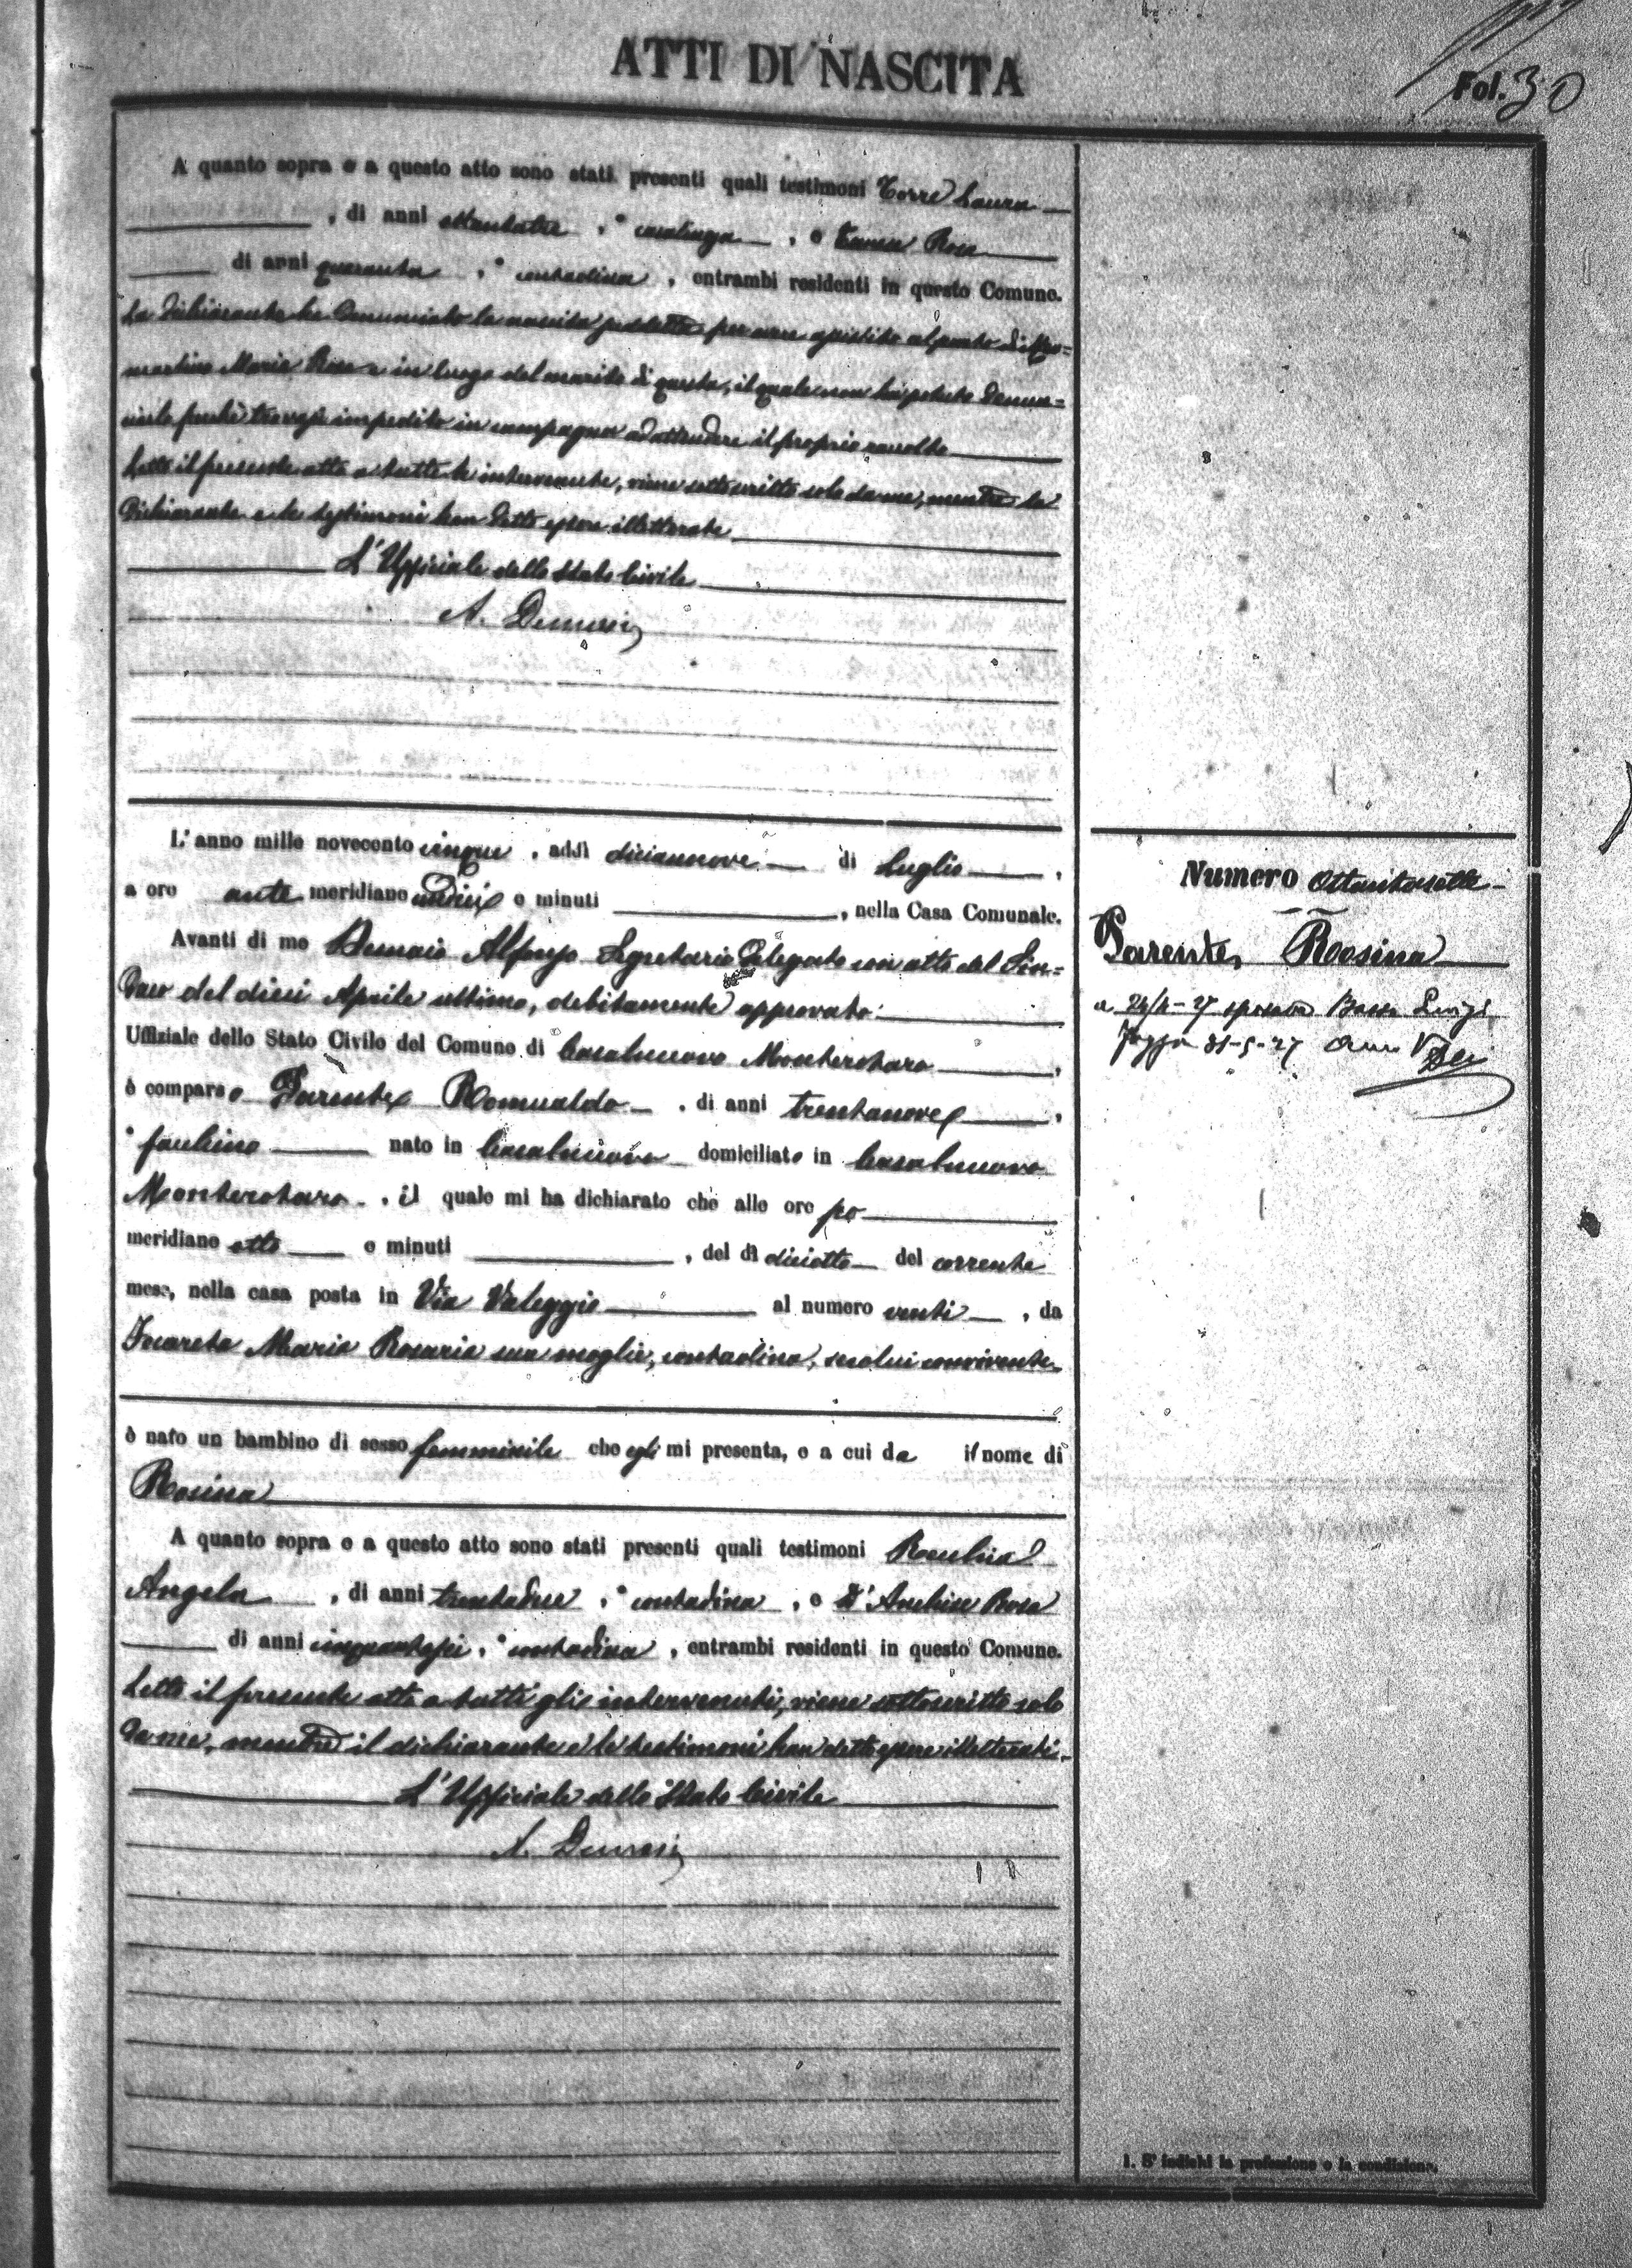 ATTI DI NASCITA
Fol. 30
A quanto sopra e a questo atto sono stati presenti quali testimoni Torre Laura
, di anni , casalinga , e Rosa
di anni quaranta , contadina , entrambi residenti in questo Comune.
La dichiarante ha denunciato la nascita suddetta per avere assistito al parto di
martino Maria Rosa e in luogo del marito di questa, il quale non ha potuto denun=
ciarla perchè trovasi impedito in campagna ad attendere il proprio raccolto
Letto il presente atto a tutte le intervenute, viene sottoscritto solo da me, mentre la
dichiarante e le testimoni han detto essere illetterate
L'Uffiziale dello Stato Civile
A. Demaio
L'anno mille novecento cinque , addì diciannove di Luglio ,
a ore ante meridiane undici e minuti , nella Casa Comunale.
Avanti di me Demaio Alfonso Segretario Delegato con atto del Sin=
daco del dieci Aprile ultimo, debitamente approvato
Uffiziale dello Stato Civile del Comune di Casalnuovo Monterotaro ,
è comparso Parente Romualdo , di anni trentanove ,
nato in Casalnuovo domiciliato in Casalnuovo
Monterotaro , il quale mi ha dichiarato che alle ore po
meridiane otto e minuti , del dì diciotto del corrente
mese, nella casa posta in Via Valeggio al numero venti , da
Maria Rosaria sua moglie, contadina, seco lui convivente
è nato un bambino di sesso femminile che egli mi presenta, e a cui da il nome di
Rosina
A quanto sopra e a questo atto sono stati presenti quali testimoni
Angela , di anni trentadue , contadina , e Rosa
di anni cinquantasei , contadina , entrambi residenti in questo Comune.
Letto il presente atto a tutti gli intervenuti, viene sottoscritto solo
da me, mentre il dichiarante e le testimoni han detto essere illetterati.
L'Uffiziale dello Stato Civile
A. Demaio
Numero Ottantasette
Parente Rosina
a 24/4-27 sposava Luigi
Foggia 31-5-27 Anno V
1. S' indichi la professione o la condizione.